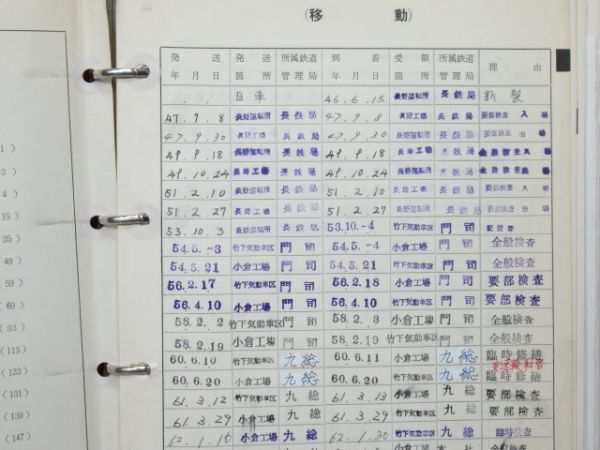 (移 動)
発送 年月日 発送 箇所 所属鉄道 管理局 到着 年月日 受領 箇所 所属鉄道 管理局 理由
. . 日車 46.6.15 長野運転所 長鉄局 新製
47.9.8 長野運転所 長鉄局 47.9.8 長野工場 長鉄局 要部検査入場
47.9.30 長野工場 長鉄局 47.9.30 長野運転所 長鉄局 要部検査出場
49.9.18 長野運転所 長鉄局 49.9.18 長野工場 長鉄局 全般検査入場
49.10.24 長野工場 長鉄局 49.10.24 長野運転所 長鉄局 全般検査出場
51.2.10 長野運転所 長鉄局 51.2.10 長野工場 長鉄局 要部検査入場
51.2.27 長野工場 長鉄局 51.2.27 長野運転所 長鉄局 要部検査出場
53.10.3 長野運転所 長鉄局 53.10.-4 竹下気動車区 門司 配置替
54.5.-3 竹下気動車区 門司 54.5.-4 小倉工場 門司 全般検査
54.5.21 小倉工場 門司 54.5.21 竹下気動車区 門司 全般検査
56.2.17 竹下気動車区 門司 56.2.18 小倉工場 門司 要部検査
56.4.10 小倉工場 門司 56.4.10 竹下気動車区 門司 要部検査
58.2.2 竹下気動車区 門司 58.2.3 小倉工場 門司 全般検査
58.2.19 小倉工場 門司 58.2.19 竹下気動車区 門司 全般検査
60.6.10 竹下気動車区 九総 60.6.11 小倉工場 九総 臨時修繕
60.6.20 小倉工場 九総 60.6.20 竹下気動車区 九総 臨時修繕
61.3.12 竹下気動車区 九総 61.3.13 小倉工場 九総 要部検査
61.3.29 小倉工場 九総 61.3.29 竹下気動車区 九総 要部検査
62.1.16 小倉工場 九総 62.1.30 竹下気動車区 九総 臨時検査
1)
(3)
(4)
(15)
(25)
(49)
(59)
(69)
(93)
(113)
(123)
(131)
(139)
(147)